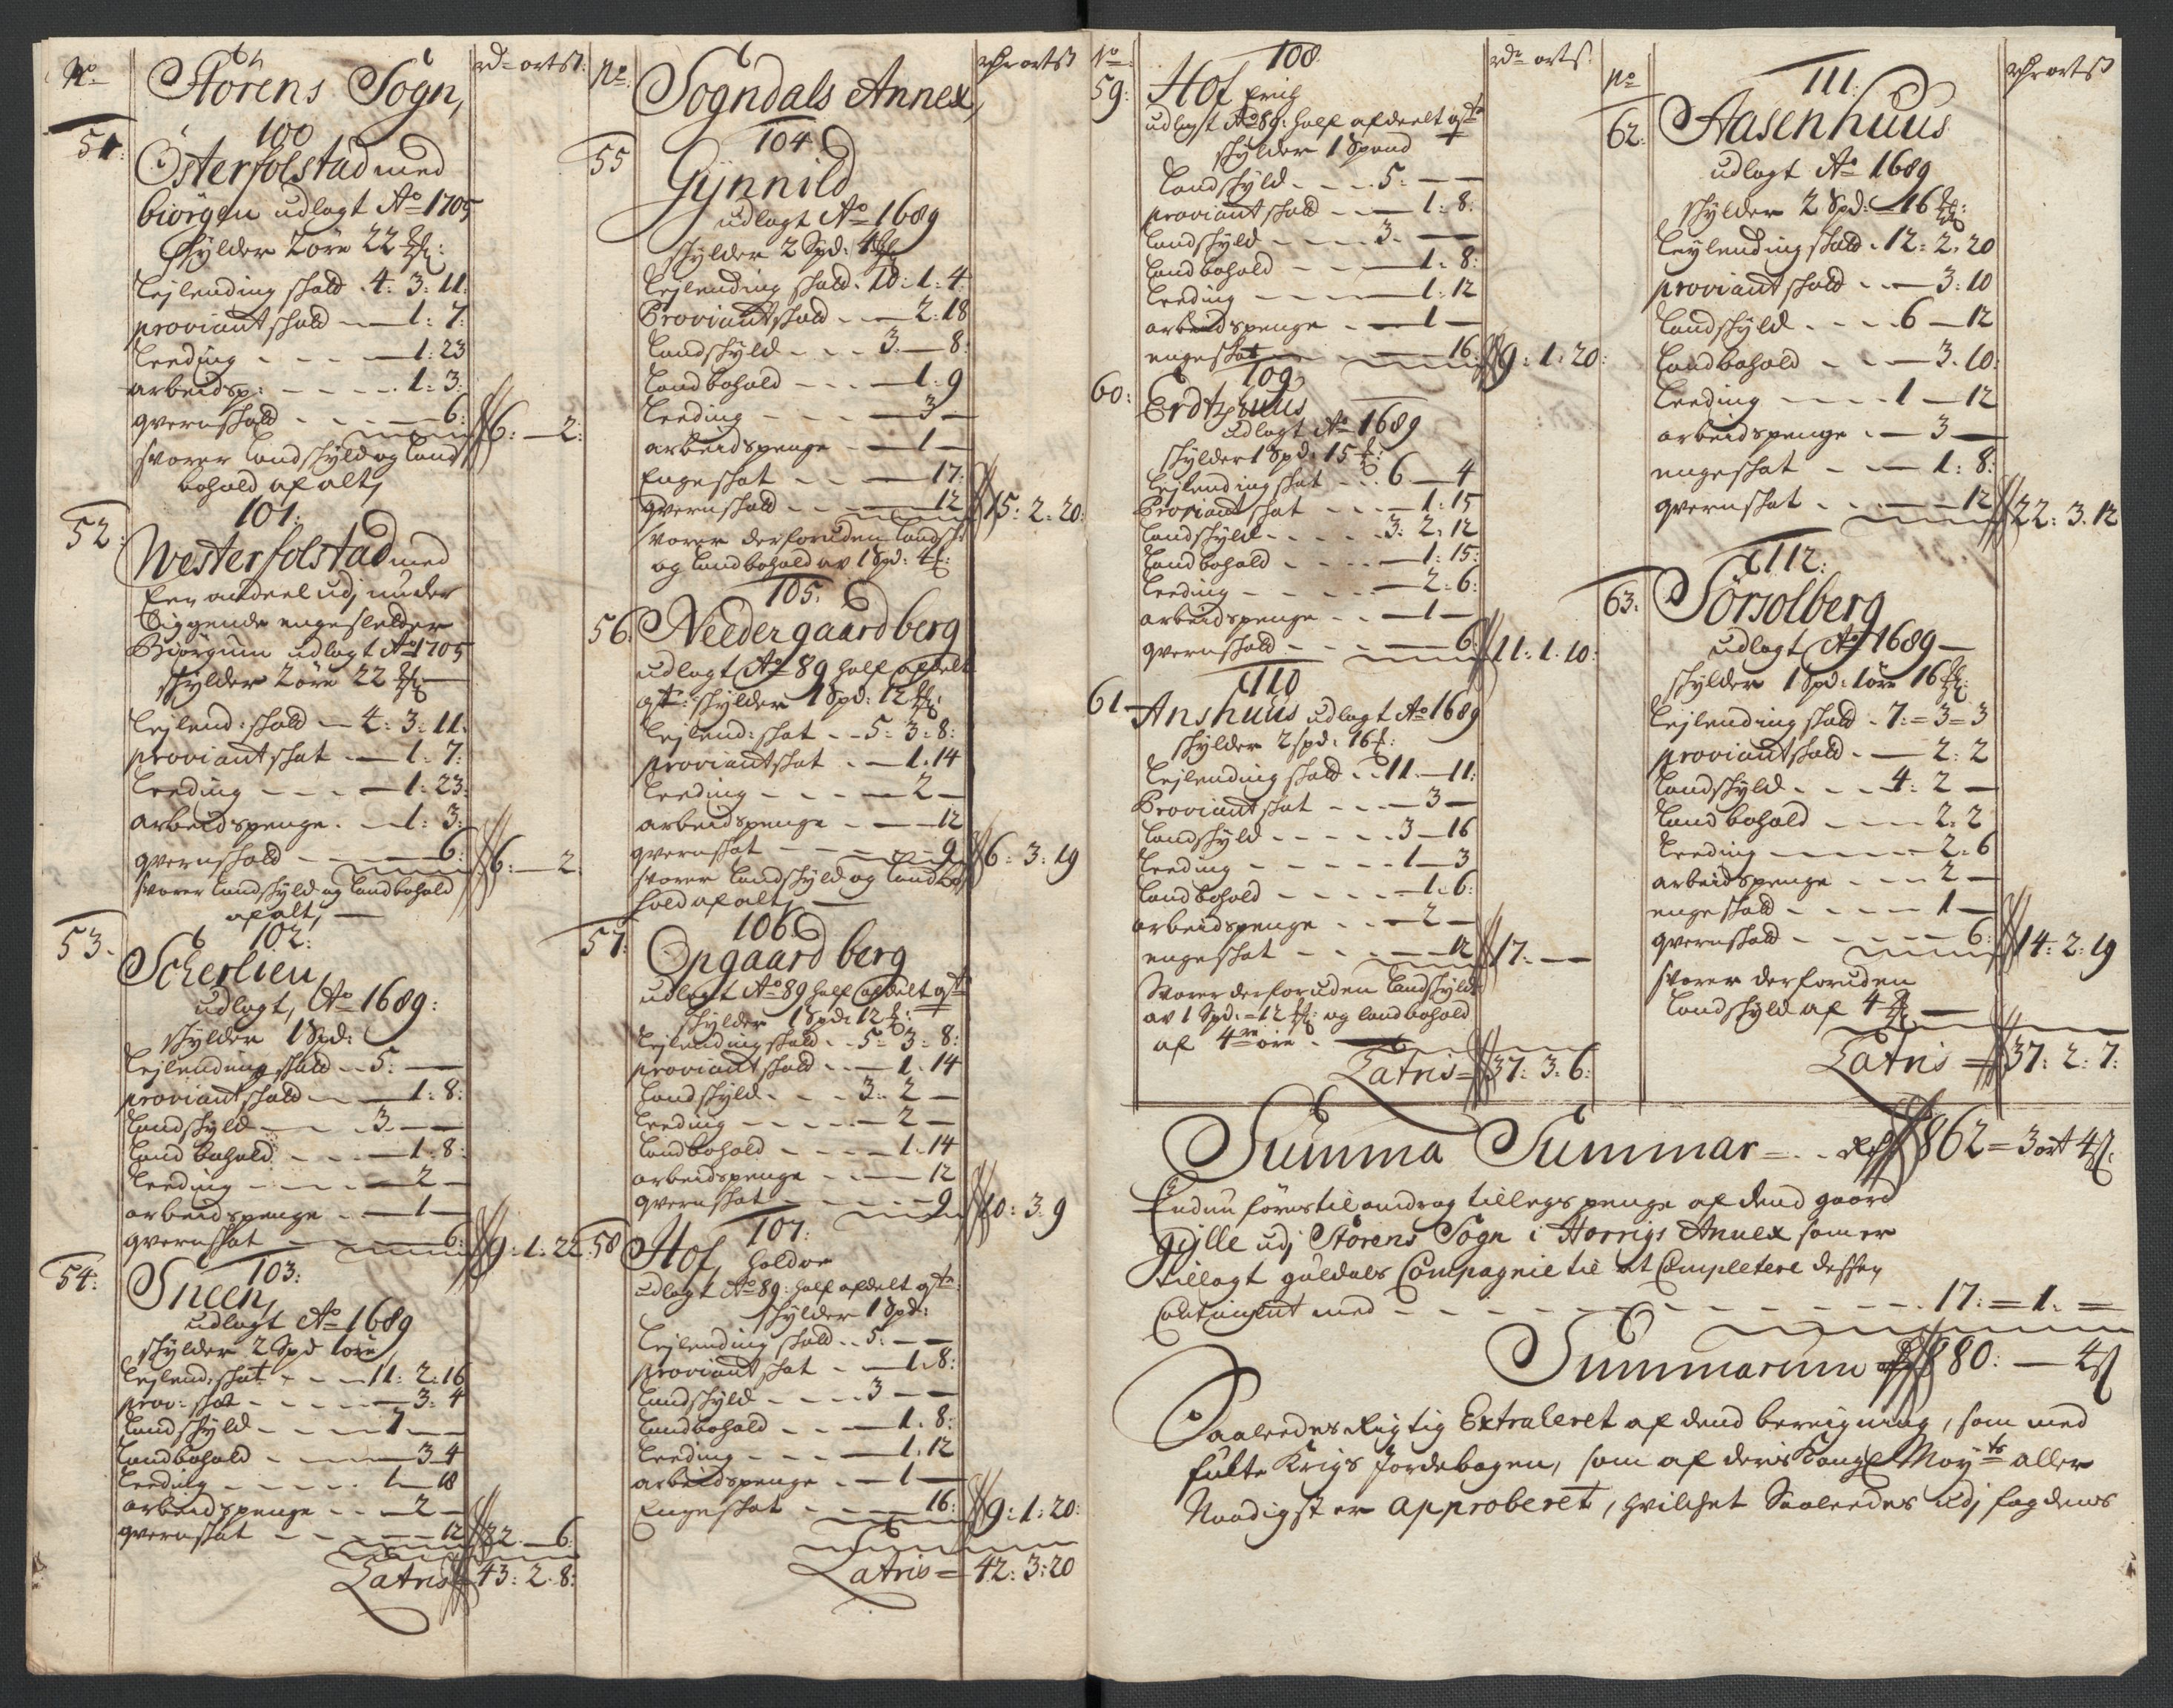 No
Störens Sogn,
rdr ort s:
51:
100
Österfolstad med
biörgen udlagt Ao 1705
skylder 2 öre 22
Leylending skatt 4: 3: 11:
proviant skatt 1: 7:
Leeding 1: 23
arbeidsp: 1: 3:
qvernskatt 6: 6: — 2:
svarer landskyld og land
bohold af alt,
52:
101:
Westerfolstad med
Een andeel udj under
liggende engesletter
Biörgum udlagt Ao 1705
skylder 2 öre 22
Leylend: skatt 4: 3: 11:
proviant skat 1: 7:
Leeding 1: 23:
arbeidspenge 1: 3:
qvernskatt 6: 6: — 2
svarer landskyld og landbohold
af alt,
53.
102:
Scherlien,
udlagt, Ao 1689:
skylder 1 Spd:
Leylending skatt 5: —
proviant skatt 1: 8:
Landskyld 3 — —
Land bohold 1: 8:
Leeding 2 —
arbeidspenge 1 —
qvernskat 6: 9: 1: 22
54:
103:
Sneen,
udlagt Ao 1689
skylder 2 Spd 1 öre
Leylend: skat 11: 2: 16
prov: skat 3: 4
Landskyld 7 — —
Landbohold 3 4
Leeding 1 — 18
arbeidspenge 2 —
qvernskat 12 22 — 6:
Latris 43: 2: 8:
No
Sogndals Annex,
rdr ort s
55
104
Gÿnnild
udlagt Ao 1689
skylder 2 Spd: 4
Leylending skatt 10: 1: 4
Proviant skatt 2: 18
Landskyld 3: — 8:
Landbohold 1: 9
Leeding 3 —
arbeidspenge 1 —
Engeskat 17:
qvernskatt 12 15: 2: 20:
svarer derforuden landsk:
og landbohold av 1 Spd: 4
105:
56.
Needergaard berg
udlagt Ao 89 half afdeelt
qt: skylder 1 Spd: 12
Leylend: skat 5: 3: 8:
proviant skat 1. 14
Leeding 2 —
arbeidspenge 12
qvernskat 9 6: 3: 19
svarer landskyld og landbo
hold af alt,
57:
106
Opgaard berg
udlagt Ao 89 half afdeelt qt
skylder 1 Spd: 12
Leylending skatt 5: 3: 8:
proviant skatt 1. 14
Landskyld 3: 2 —
Leeding 2 —
Landbohold 1. 14
arbeidspenge 12
qvernskat 9 10: 3: 9
58
107:
Hof,
udlagt Ao 89: half afdelt qt
skylder 1 Spd:
Leylending skatt 5: — —
proviant skat 1. 8:
Landskyld 3 — —
Landbohold 1. 8:
Leeding 1. 12
arbeidspenge 1 —
Engeskat 16: 9: 1: 20:
Latris = 42: 3: 20
No
rdr ort s.
59:
108
Hof Erich
udlagt Ao 89: half afdeelt qt
skylder 1 Spand
Landskyld 5: — —
proviant skatt 1: 8:
Landskyld 3. —
Landbohold 1: 8:
Leeding 1: 12
arbeidspenge 1 —
engeskat 16: 9: 1: 20:
60:
109
udlagt Ao 1689
skylder 1 Spd: 15
Leylending skat 6 — 4
Proviant skat 1: 15
Landskyld 3: 2: 12
Landbohold 1: 15:
Leeding 2: 6:
arbeidspenge 1 —
qvernskatt 6 11: 1: 10:
61
110
Anshuus udlagt Ao 1689
skylder 2 spd: 16
Leylending skatt 11 — 11:
Proviant skat 3 —
Landskyld 3 — 16
Leeding 1 — 3
Landbohold 1: 6:
arbeidspenge 2 —
engeskat 12 17: — —
Svarer derforuden landskyld
av 1 Spd: = 12 og landbohold
af 4 öre
Latris = 37: 3: 6:
No
rdr ort s
62:
111.
Aasenhuus
udlagt Ao 1689
skylder 2 Spd: 16
Leylending skatt 12: 2: 20
proviant skatt 3: 10
Landskyld 6 — 12
Landbohold 3. 10:
Leeding 1 — 12
arbeidspenge 3 —
engeskat 1: 8:
qvernskat 12 22: 3. 12
63:
112:
Sörsolberg
udlagt Ao 1689 —
skylder 1 Spd: 1 öre 16
Leylending skatt 7: = 3 = 3
proviant skatt 2: 2
Landskyld 4: 2 —
Landbohold 2: 2
Leeding 2: 6
arbeidspenge 2 —
engeskatt 1 —
qvernskatt 6: 14: 2: 19
svarer derforuden
Landskyld af 4
Latris = 37: 2: 7:
Summa Summar = 862 = 3 ort 4 s
Endnu tillegs penge af dend gaard
Gylle udj Störens Sogn i Horrigs Annex som er
tillagt guldals Compagnie til at Completere dessen
Contingent med 17: = 1: =
Summarum 880: — 4 s
Saaledes Rigtig Extraheret af dend bereigning, som med
fulte Krigs Jordebogen, som af deris Kongl May:ts aller
Naadigst er approberet, hvilchet Saaledes udj fogdens